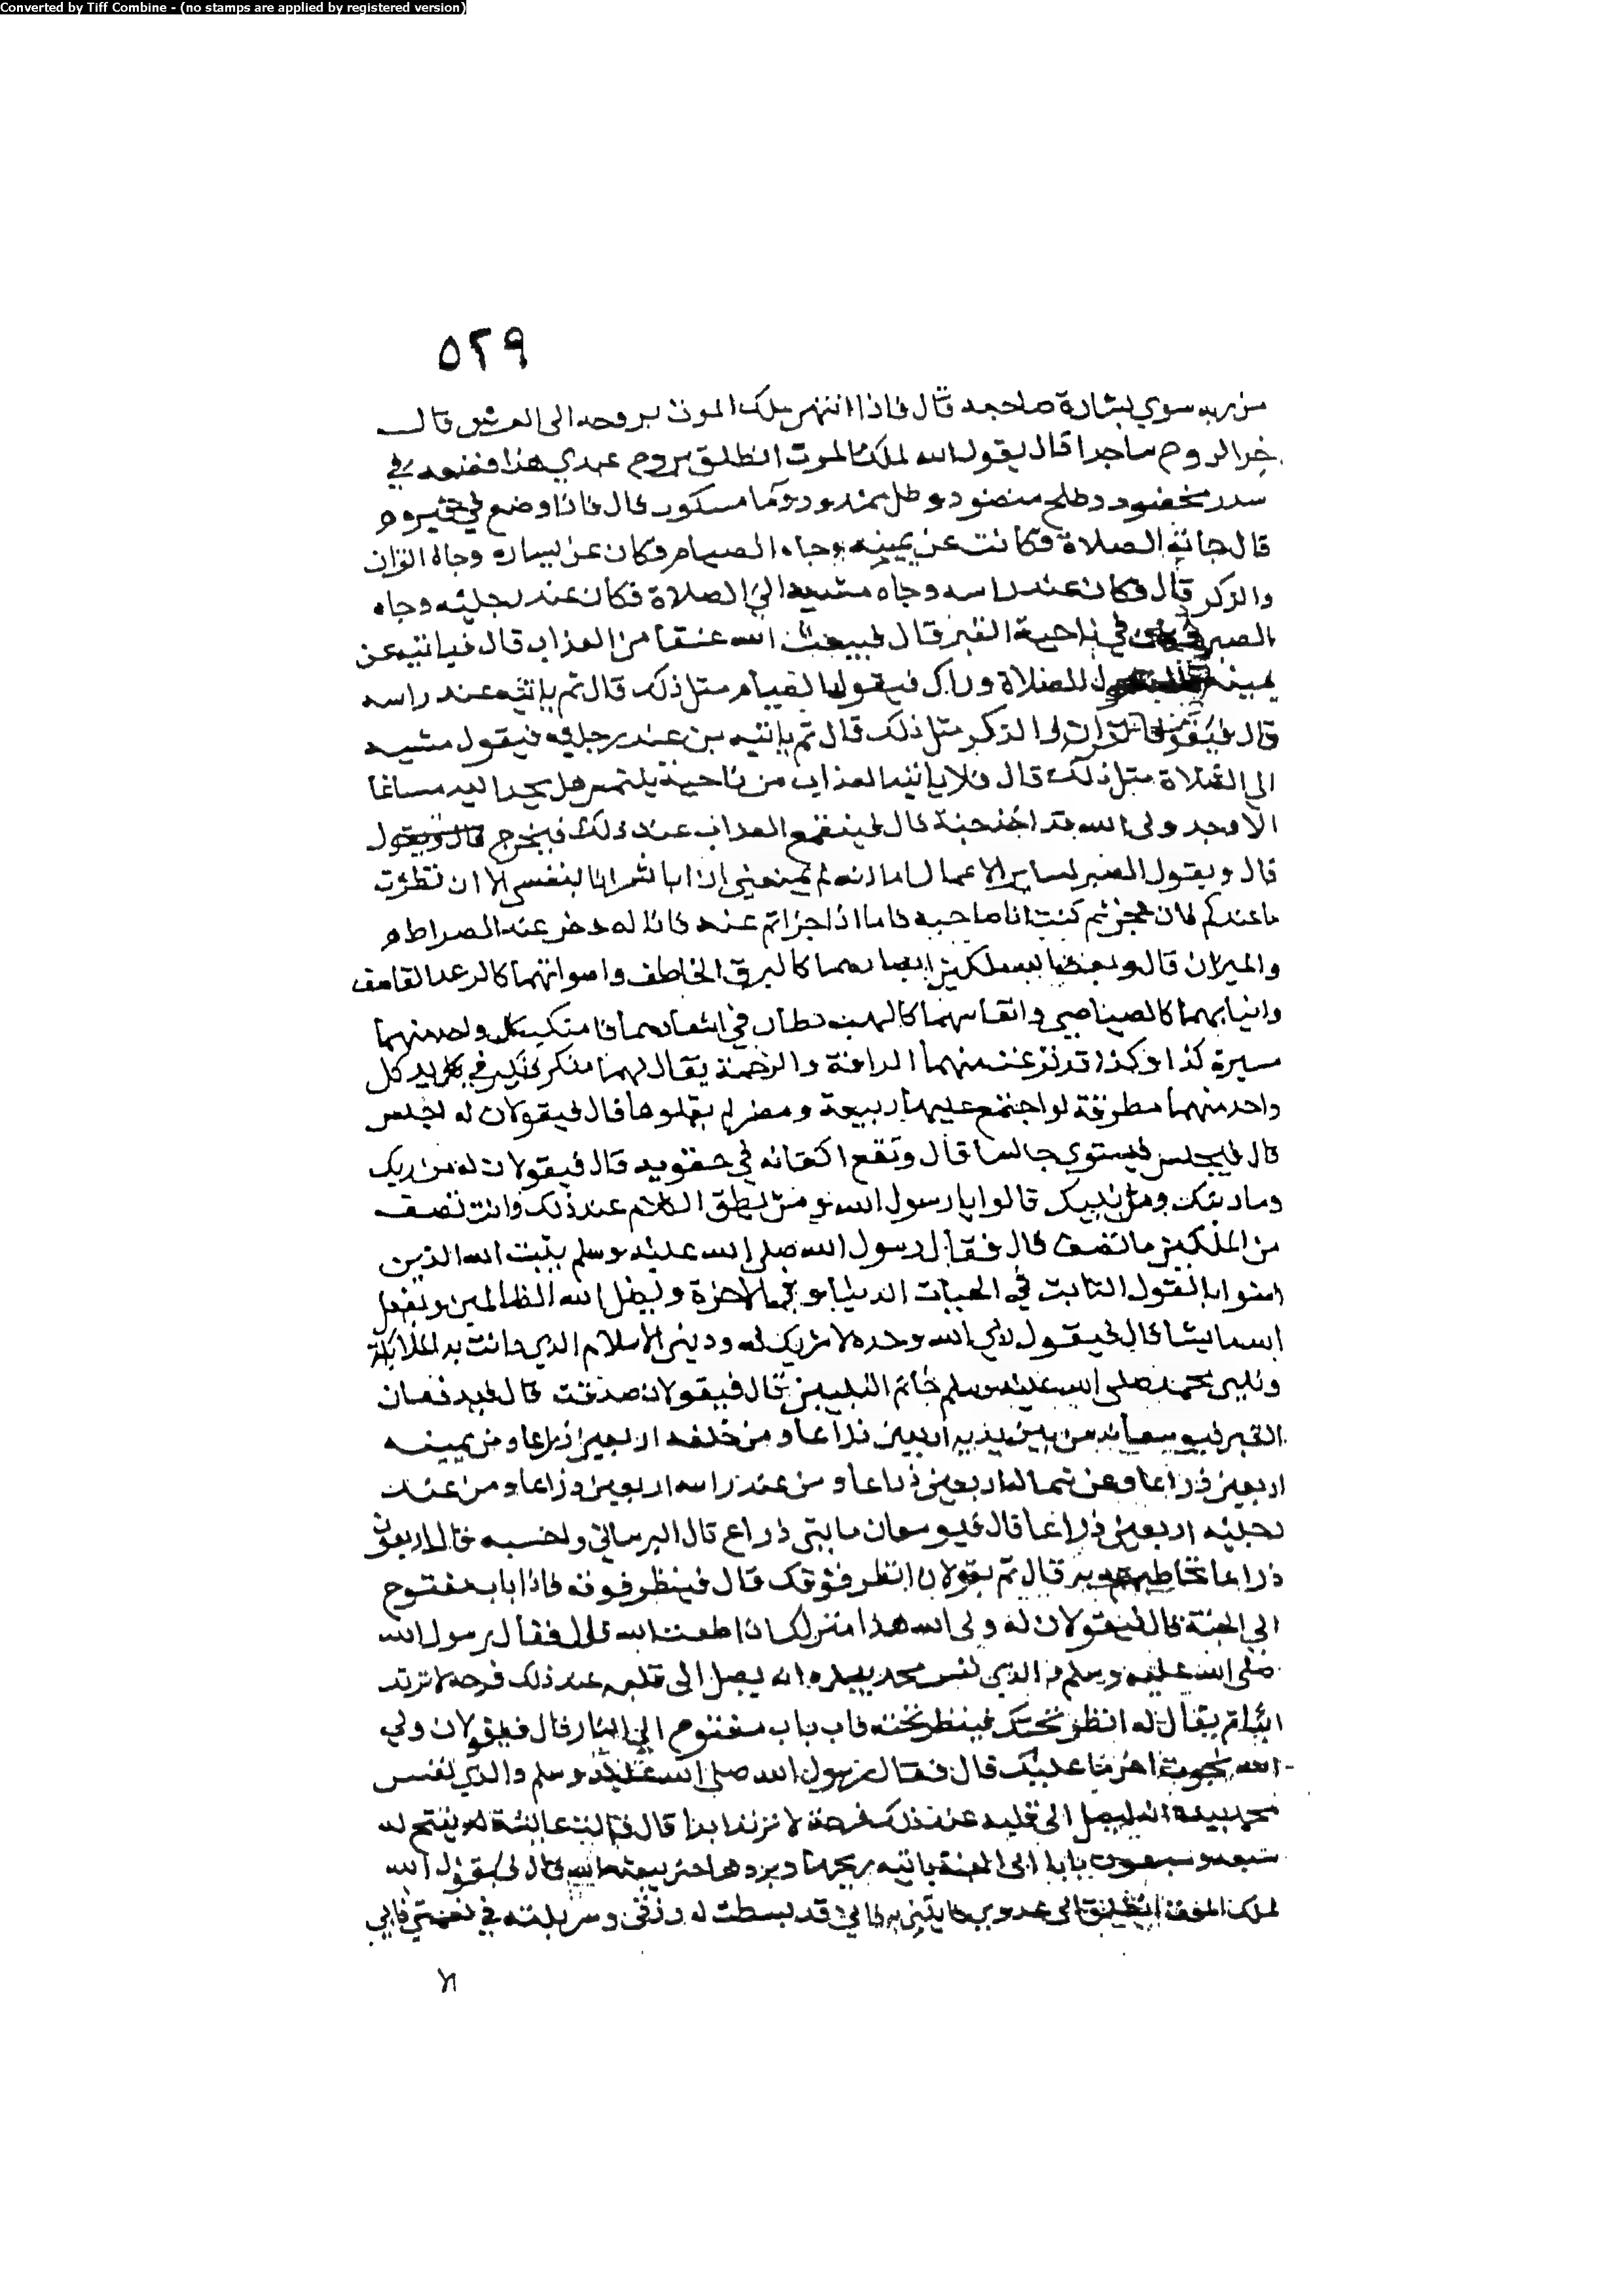 Converted by Tiff Combine - (no stamps are applied by registered version)
٥٢٩
من ربه سوي بشارة صاحبه قال فاذا انتهى ملك الموت بروحه الى العرش قال
خر الروح ساجدا قال يقول الله لملك الموت انطلق بروح عبدي هذا فضعه في
سدر مخضود وطلح منضود وظل ممدود وما مسكوب قال فاذا وضع في قبره
قال جاته الصلاة فكانت عن يمينه وجاه الصيام فكان عن يساره وجاه القران
والذكر قال فكان عند راسه وجاه مشيه الى الصلاة فكان عند رجليه وجاه
الصبر في ناحية القبر قال فيبعث الله عنقا من العذاب قال فياتيه عن
يمينه الصلاة وراك فيقول الصيام مثل ذلك قال ثم ياتيه عند راسه
قال فيقول القران والذكر مثل ذلك قال ثم ياتيه من عند رجليه فيقول مشيه
الى الصلاة مثل ذلك قال فلا ياتيه العذاب من ناحية يلتمس هل يجد اليه مساغا
الا وجد ولى الله قد اخذ جنبه قال فينقمع العذاب عند ذلك فيخرج قال ويقول
قال ويقول الصبر لساير الاعمال اما انه لم يمنعني ان اباشر انا بنفسي الا ان نظرت
ما عندكم فان عجزتم كنت انا صاحبه فاما اذا اجزاتم عنه فانا له دخر عند الصراط
والميزان قال ويبعث الله ملكين ابصارهما كالبرق الخاطف واصواتهما كالرعد القاصف
وانيابهما كالصياصي وانفاسهما كاللهب يطان في اشعارهما بين منكبي كل واحد منهما
مسيرة كذا وكذا قد نزعت منهما الرافة والرحمة يقال لهما منكر ونكير في يد كل
واحد منهما مطرقة لو اجتمع عليها ربيعة ومضر لم يقلوها قال فيقولان له اجلس
قال فيجلس فيستوي جالسا قال وتقع اكفانه في حقويه قال فيقولان له من ربك
وما دينك ومن نبيك قالوا يا رسول الله ومن يطيق الكلام عند ذلك وانت تصف
من الملكين ما تصف قال فقال رسول الله صلى الله عليه وسلم يثبت الله الذين
امنوا بالقول الثابت في الحيات الدنيا وفي الاخرة ويضل الله الظالمين ويفعل
الله ما يشا قال فيقول ربي الله وحده لا شريك له وديني الاسلام الذي دانت به الملايكة
ونبيي محمد صلى الله عليه وسلم خاتم النبيين قال فيقولان صدقت قال فيدفعان
القبر فيوسعانه من بين يديه اربعين ذراعا ومن خلفه اربعين ذراعا وعن يمينه
اربعين ذراعا وعن شماله اربعين ذراعا ومن عند راسه اربعين ذراعا ومن عند
رجليه اربعين ذراعا قال فيوسعان مايتي ذراع قال البرساني واحسبه قال اربعون
ذراعا تحاط به قال ثم يقولان انظر فوقك قال فينظر فوقه فاذا باب مفتوح
الى الجنة قال فيقولان له ولى الله هذا منزلك اذ اطعت الله قال فقال رسول الله
صلى الله عليه وسلم والذي نفس محمد بيده انه يصل الى قلبه عند ذلك فرحة لا ترتد
ابدا ثم يقال له انظر تحتك فينظر تحته فاب باب مفتوح الى النار قال فيقولان ولي
الله نجوت اخر ما عليك قال فقال رسول الله صلى الله عليه وسلم والذي نفس
محمد بيده انه ليصل الى قلبه عند ذلك فرحة لا ترتد ابدا قال فقالت عائشة يفتح له
سبعة وسبعون بابا الى الجنة ياتيه ريحها وبردها حتى يبعثه الله قال ويقول الله
لملك الموت انطلق الى عدوي فايتني به فاني قد بسطت له رزقي وسربلته في نعمتي فابي
الا